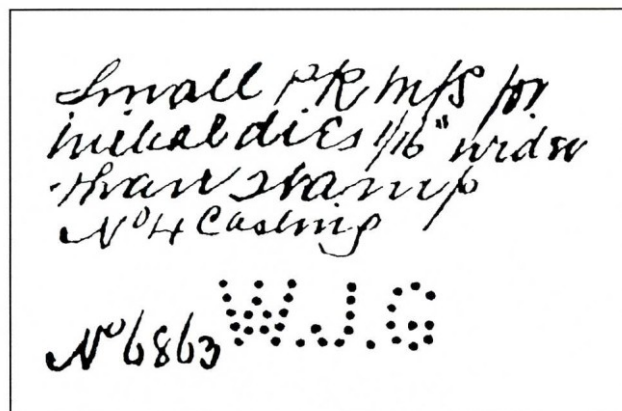 Small PR M/S for
initial dies 1/16" wider
than stamp
Nº 4 Casting
Nº 6863 W.J.G